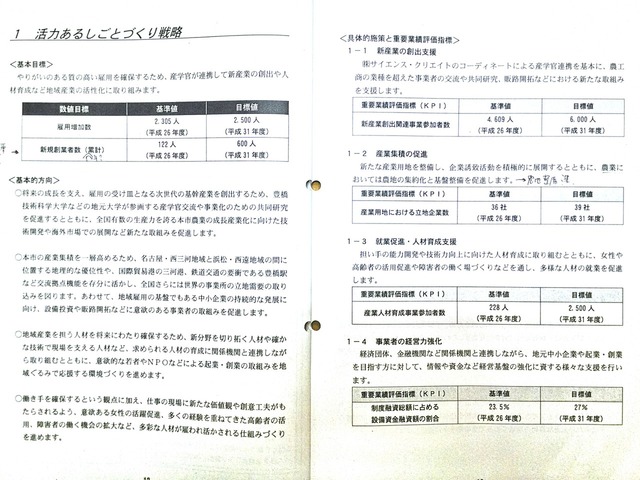 1 活力あるしごとづくり戦略
＜基本目標＞
やりがいのある質の高い雇用を確保するため、産学官が連携して新産業の創出や人
材育成など地域産業の活性化に取り組みます。
数値目標 基準値 目標値
雇用増加数 2.305人 2.500人
(平成26年度) (平成31年度)
新規創業者数(累計) 122人 600人
(平成26年度) (平成31年度)
＜基本的方向＞
○将来の成長を支え、雇用の受け皿となる次世代の基幹産業を創出するため、豊橋
技術科学大学などの地元大学が参画する産学官交流や事業化のための共同研究
を促進するとともに、全国有数の生産力を誇る本市農業の成長産業化に向けた技
術開発や海外市場での展開など新たな取組みを促進します。
○本市の産業集積を一層高めるため、名古屋・西三河地域と浜松・西遠地域の間に
位置する地理的な優位性や、国際貿易港の三河港、鉄道交通の要衝である豊橋駅
など交流拠点機能を存分に活かし、全国さらには世界の事業所の立地需要の取り
込みを図ります。あわせて、地域雇用の基盤でもある中小企業の持続的な発展に
向け、設備投資や販路開拓などに意欲のある事業者の取組みを促進します。
○地域産業を担う人材を将来にわたり確保するため、新分野を切り拓く人材や確か
な技術で現場を支える人材など、求められる人材の育成に関係機関と連携しながら
取り組むとともに、意欲的な若者やNPOなどによる起業・創業の取組みを地
域ぐるみで応援する環境づくりを進めます。
○働き手を確保するという観点に加え、仕事の現場に新たな価値観や創意工夫がも
たらされるよう、意欲ある女性の活躍促進、多くの経験を重ねてきた高齢者の活
用、障害者の働く機会の拡大など、多彩な人材が雇われ活かされる仕組みづくり
を進めます。
＜具体的施策と重要業績評価指標＞
1－1 新産業の創出支援
㈱サイエンス・クリエイトのコーディネートによる産学官連携を基本に、農工
商の業種を超えた事業者の交流や共同研究、販路開拓などにおける新たな取組み
を支援します。
重要業績評価指標(KPI) 基準値 目標値
新産業創出関連事業参加者数 4.609人 6.000人
(平成26年度) (平成31年度)
1－2 産業集積の促進
新たな産業用地を整備し、企業誘致活動を積極的に展開するとともに、農業に
おいては農地の集約化と基盤整備を促進します。
重要業績評価指標(KPI) 基準値 目標値
産業用地における立地企業数 36社 39社
(平成26年度) (平成31年度)
1－3 就業促進・人材育成支援
担い手の能力開発や技術力向上に向けた人材育成に取り組むとともに、女性や
高齢者の活用促進や障害者の働く場づくりなどを通し、多様な人材の就業を促進
します。
重要業績評価指標(KPI) 基準値 目標値
産業人材育成事業参加者数 228人 2.500人
(平成26年度) (平成31年度)
1－4 事業者の経営力強化
経済団体、金融機関など関係機関と連携しながら、地元中小企業や起業・創業
を目指す方に対して、情報や資金など経営基盤の強化に資する様々な支援を行い
ます。
重要業績評価指標(KPI) 基準値 目標値
制度融資総額に占める 23.5% 27%
設備資金融資額の割合 (平成26年度) (平成31年度)